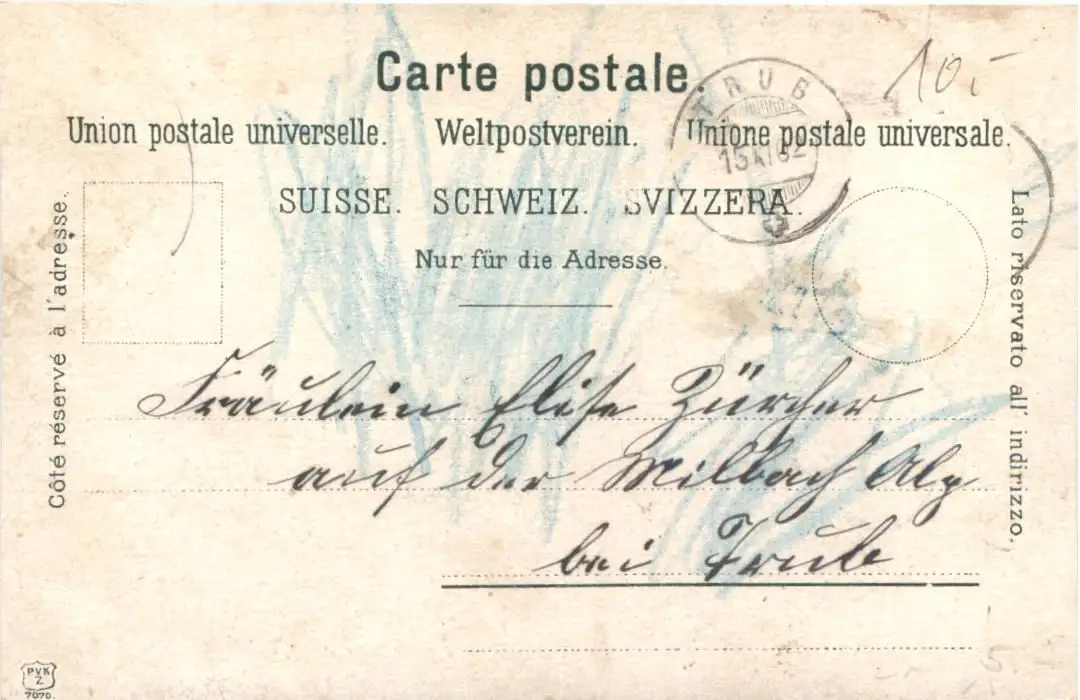 Carte postale.
10.-
TRUB
15 XI 02
Union postale universelle. Weltpostverein. Unione postale universale.
SUISSE. SCHWEIZ. SVIZZERA.
Nur für die Adresse.
Côté réservé à l'adresse.
Lato riservato all' indirizzo.
Fräulein Elise Zürcher
auf der Milbach Alp
bei Trub
5
PVK
Z
7070.